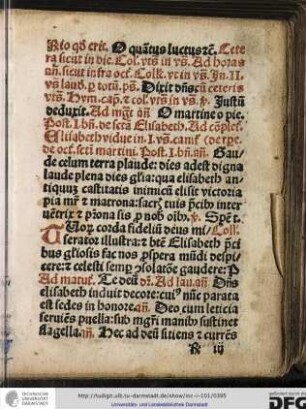 Alo qd erit. O quātus luctus ꝛc̄. Cete
ra sicut in die. Col. vt̄s in vs̄. Ad horas
an̄. sicut infra oct̄. Coll̄. vt in vs̄. In .II.
vs̄ laud̄. p totū. ps̄. Dixit dn̄s cū ceteris
vt̄s. Hym. cap̄. ⁊ col. vt̄s in vs̄. v̄. Justū
deduxit. Ad mgt̄ an̄ O martine o pie.
Post .I. bn̄. de scta Elisabeth. Ad cōplet̄.
Elisabeth vidue in .I. vs̄. cant̄
de oct̄. scti martini. Post .I. bn̄. an̄. Gau/
de celum terra plaude: dies adest digna
laude plena dies gl̄ia: qua elisabeth an/
tiquum castitatis inimicū elisit victoria
pia mr̄ ⁊ matrona: sacr̄ tuis pcib̄ inter
ueni pro nob oib. v̄. Spe
Tuoꝝ corda fideliū deus mi/ Coll̄.
serator illustra: ⁊ bt̄e Elisabeth p̄ci
bus gl̄iosis fac nos pspera mūdi despi/
cere: ⁊ celesti semp ꝯsolatōe gaudere: P
Ad matut̄. Te deū dz̄. Ad lau. an̄. Dn̄s
elisabeth induit decore: cui nūc parata
est sedes in honore. an̄. Deo cum leticia
seruiēs puella: sub mgr̄i manib sustinet
flagella. an̄. Hec ad deū sitiens ⁊ currēs
R iij
TECHNISCHE
UNIVERSITÄT
DARMSTADT
http://tudigit.ulb.tu-darmstadt.de/show/inc-i-101/0395
Universitäts- und Landesbibliothek Darmstadt
gefördert durch die
DFG